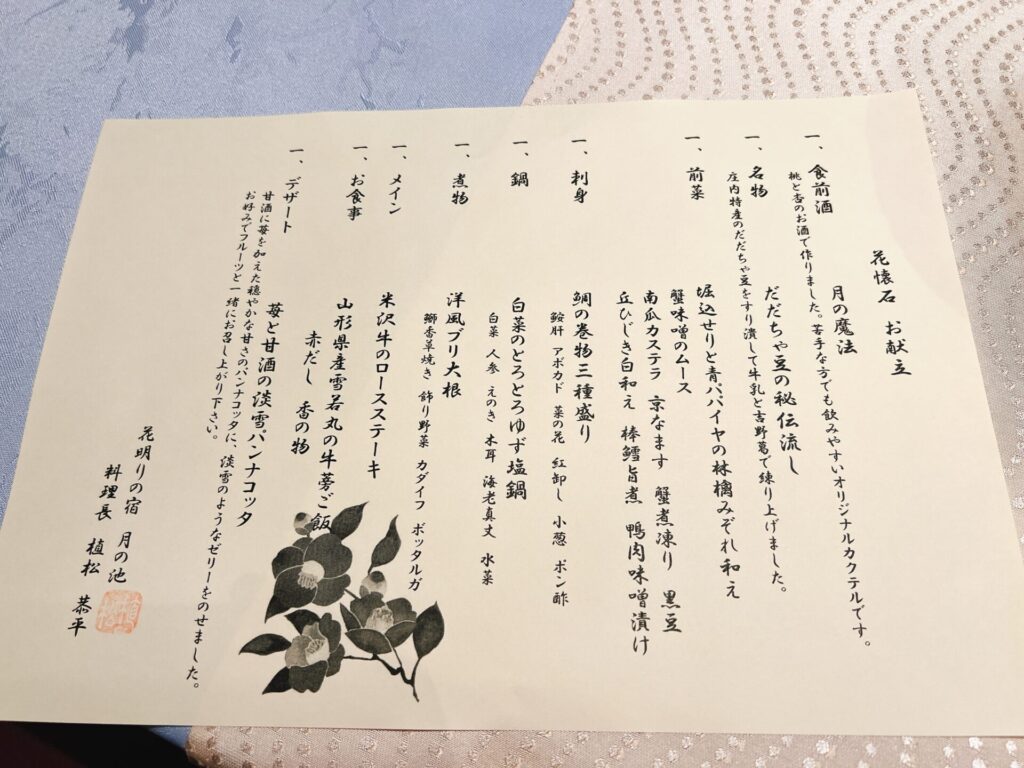 花懐石 お献立
一、食前酒 月の魔法
桃と杏のお酒で作りました。苦手な方でも飲みやすいオリジナルカクテルです。
一、名物 だだちゃ豆の秘伝流し
庄内特産のだだちゃ豆をすり潰して牛乳と吉野葛で練り上げました。
一、前菜 堀込せりと青パパイヤの林檎みぞれ和え
蟹味噌のムース
南瓜カステラ 京なます 蟹煮凍り 黒豆
丘ひじき白和え 棒鱈旨煮 鴨肉味噌漬け
一、刺身 鯛の巻物三種盛り
鮟肝 アボカド 菜の花 紅卸し 小葱 ポン酢
一、鍋 白菜のとろとろゆず塩鍋
白菜 人参 えのき 木耳 海老真丈 水菜
一、煮物 洋風ブリ大根
鰤香草焼き 飾り野菜 カダイフ ボッタルガ
一、メイン 米沢牛のロースステーキ
一、お食事 山形県産雪若丸の牛蒡ご飯
赤だし 香の物
一、デザート 苺と甘酒の淡雪パンナコッタ
甘酒に苺を加えた穏やかな甘さのパンナコッタに、淡雪のようなゼリーをのせました。
お好みでフルーツと一緒にお召し上がり下さい。
花明りの宿 月の池
料理長 植松 恭平